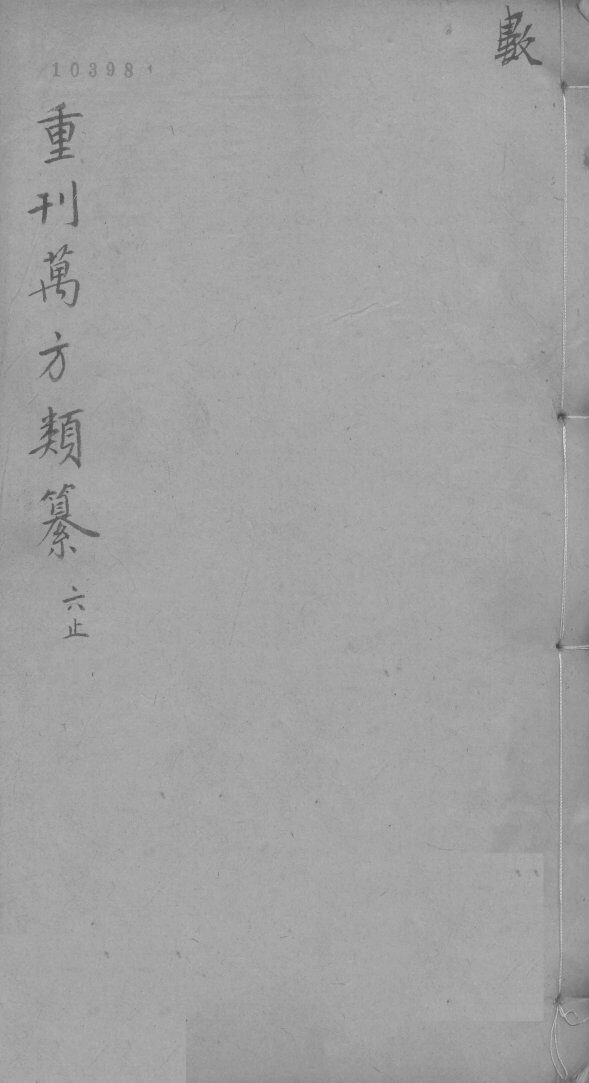 數
10398
重刊萬方類纂
六止